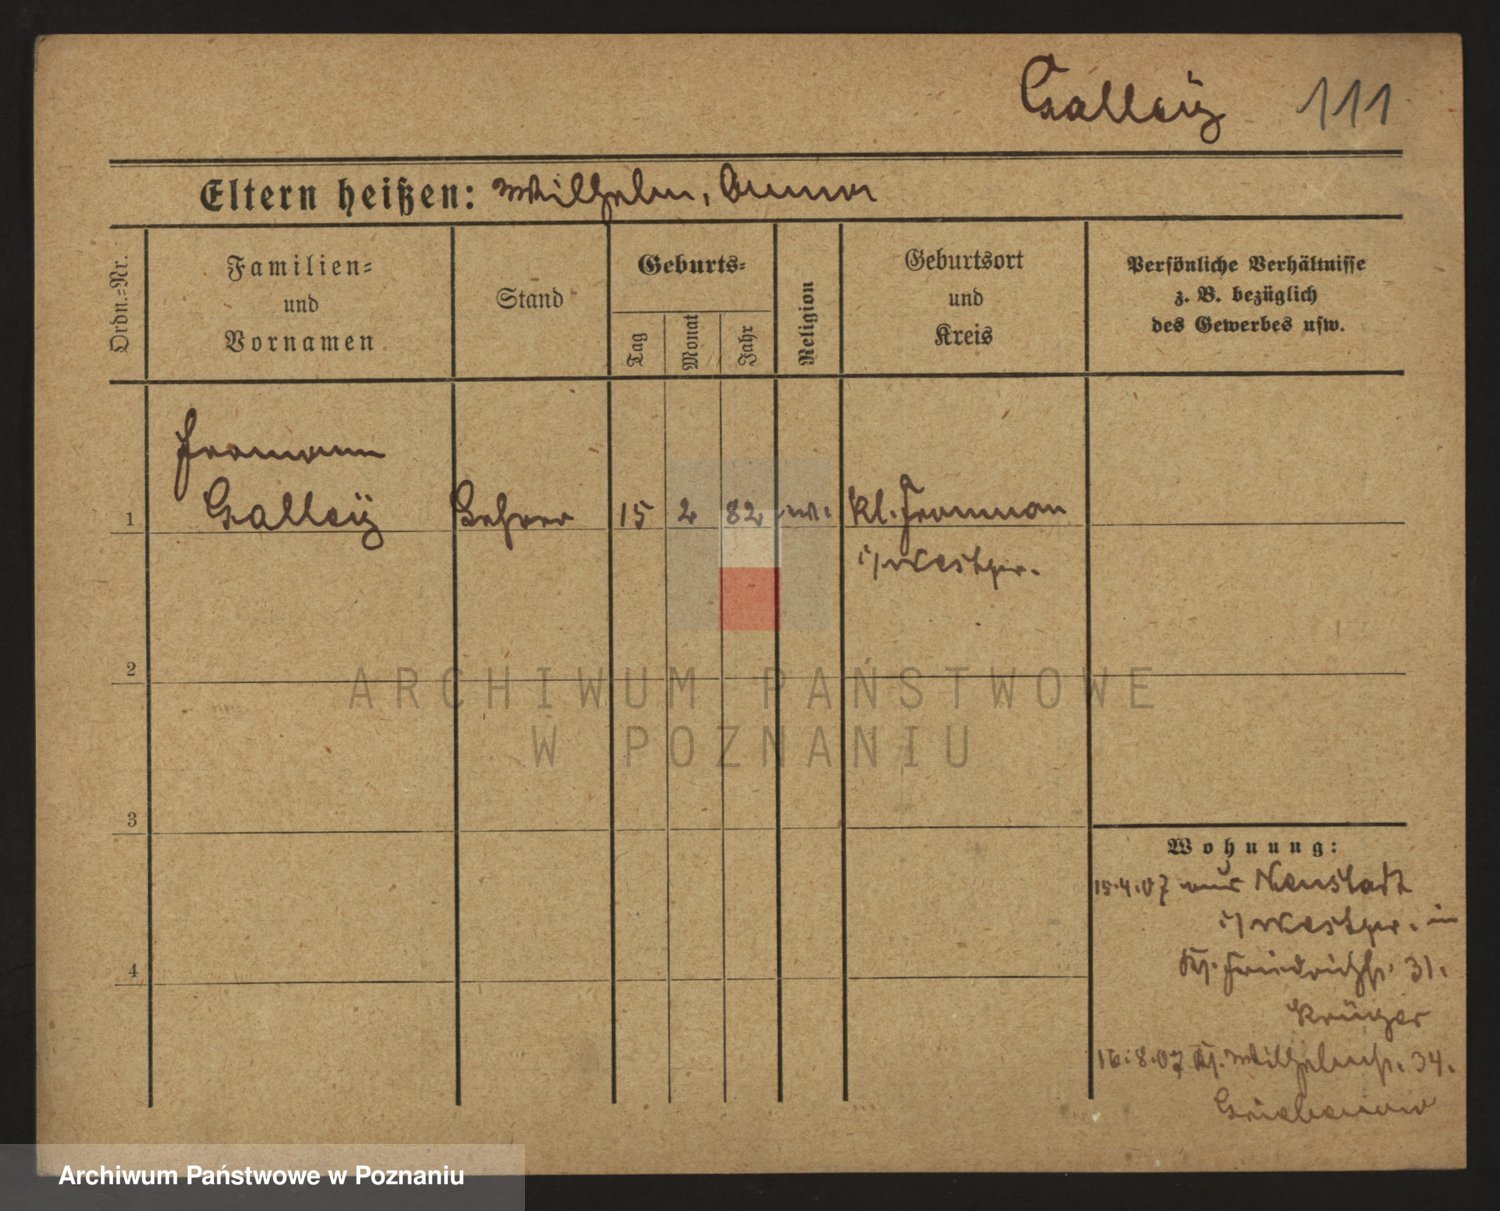 111
Eltern heißen: Wilhelm, Anna
Ordn.-Nr.
Familien-
und
Vornamen
Stand
Geburts-
Tag
Monat
Jahr
Religion
Geburtsort
und
Kreis
Persönliche Verhältnisse
z. B. bezüglich
des Gewerbes usw.
Hermann
1
Lehrer
15
2
82
Kl.
i/Westpr.
ARCHIWUM PAŃSTWOWE
2
W POZNANIU
3
Wohnung:
15.4.07 aus Neustadt
i/Westpr. in
4
Friedrichstr. 31.
Krüger
16.8.07 Wilhelmstr. 34.
Archiwum Państwowe w Poznaniu